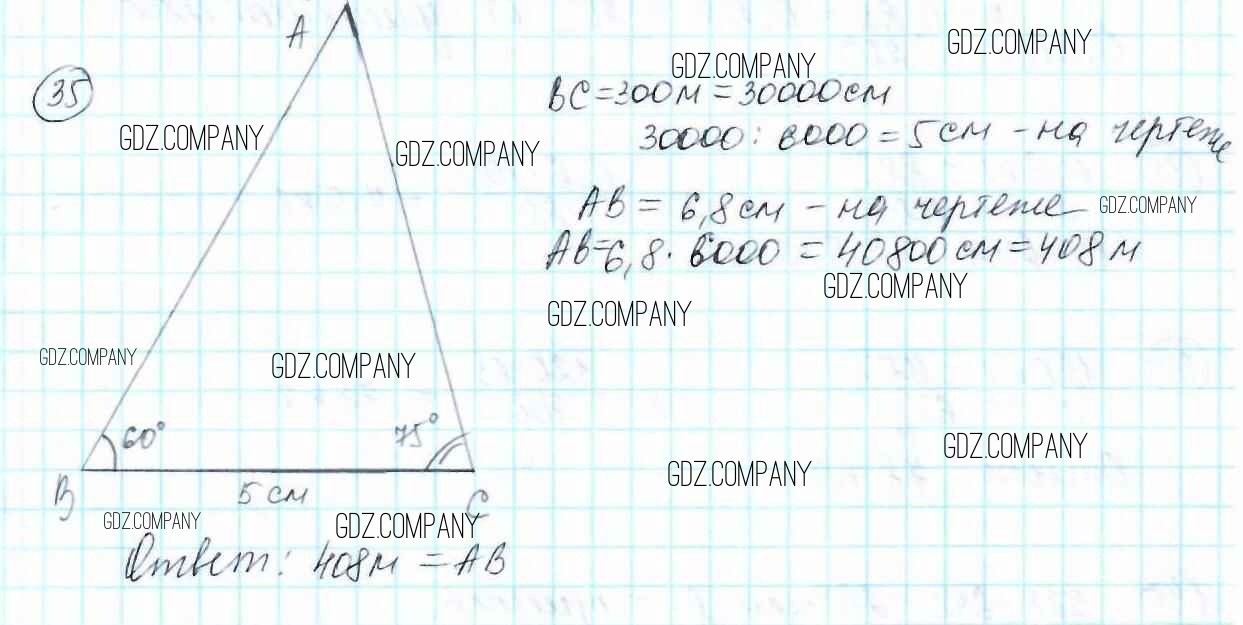 A
35
GDZ.COMPANY
GDZ.COMPANY
BC = 300 м = 30000 см
GDZ.COMPANY
GDZ.COMPANY
30000 : 6000 = 5 см - на чертеже
AB = 6,8 см - на чертеже
GDZ.COMPANY
AB = 6,8 · 6000 = 40800 см = 408 м
GDZ.COMPANY
GDZ.COMPANY
GDZ.COMPANY
GDZ.COMPANY
60° 75°
GDZ.COMPANY
GDZ.COMPANY
B 5 см C
GDZ.COMPANY
GDZ.COMPANY
Ответ: 408 м = AB